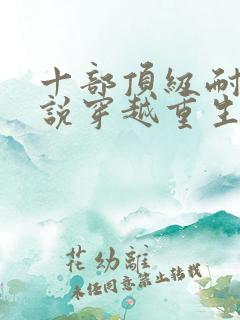 十部頂級耐
說穿越重生
花幼離
未经同意禁止转载